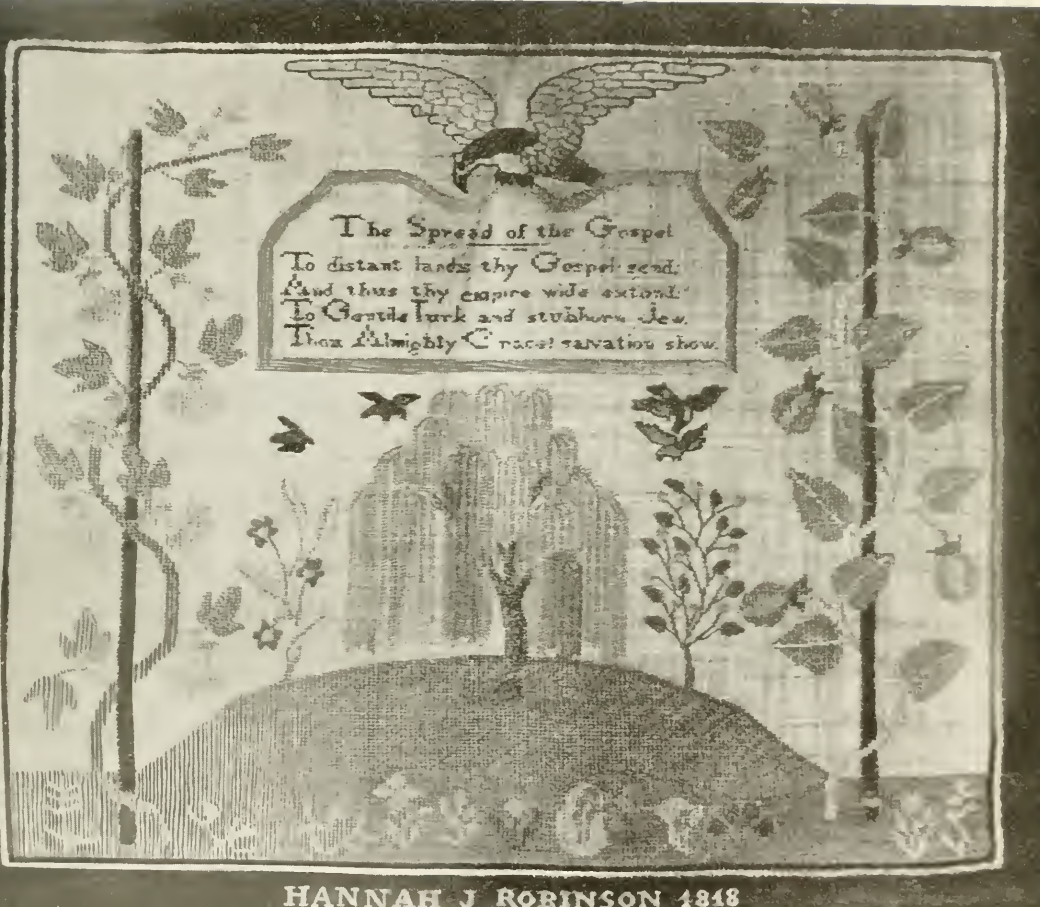 The Spread of the Gospel
To distant lands thy Gospel send,
And thus thy empire wide extend:
To Gentile Turk and stubborn Jew
Thou Almighty Grace! salvation show.
HANNAH J ROBINSON 1818